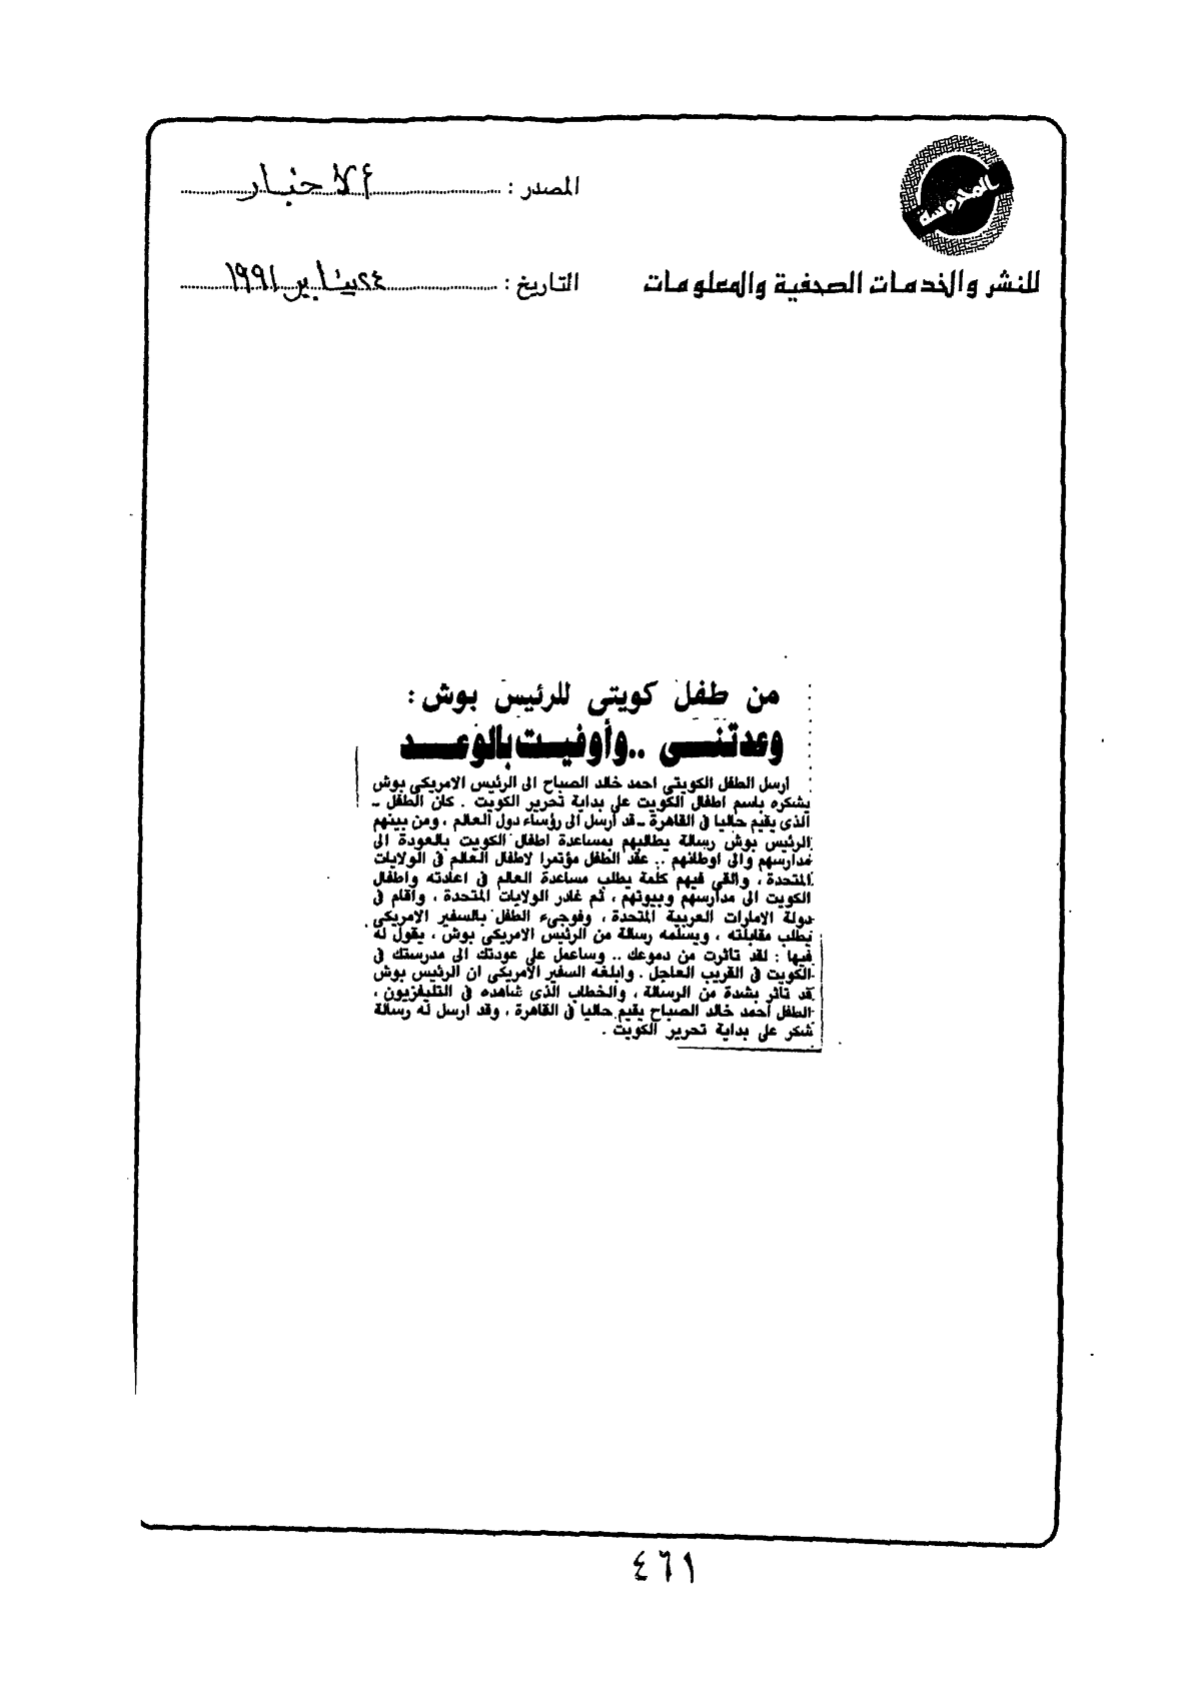 المحروسة
للنشر والخدمات الصحفية والمعلومات
المصدر : الأخبار
التاريخ : ٢٤ يناير ١٩٩١
من طفل كويتى للرئيس بوش :
وعدتنى .. وأوفيت بالوعد
أرسل الطفل الكويتى احمد خالد الصباح الى الرئيس الامريكى بوش
يشكره باسم اطفال الكويت على بداية تحرير الكويت . كان الطفل ــ
الذى يقيم حاليا فى القاهرة ــ قد أرسل الى رؤساء دول العالم ، ومن بينهم
الرئيس بوش رسالة يطالبهم بمساعدة اطفال الكويت بالعودة الى
مدارسهم والى اوطانهم .. عقد الطفل مؤتمرا لاطفال العالم فى الولايات
المتحدة ، والقى فيهم كلمة يطلب مساعدة العالم فى اعادته واطفال
الكويت الى مدارسهم وبيوتهم ، ثم غادر الولايات المتحدة ، واقام فى
دولة الامارات العربية المتحدة ، وفوجىء الطفل بالسفير الامريكى
يطلب مقابلته ، ويسلمه رسالة من الرئيس الامريكى بوش ، يقول له
فيها : لقد تاثرت من دموعك .. وساعمل على عودتك الى مدرستك فى
الكويت فى القريب العاجل . وابلغه السفير الامريكى ان الرئيس بوش
قد تاثر بشدة من الرسالة ، والخطاب الذى شاهده فى التليفزيون ،
الطفل احمد خالد الصباح يقيم حاليا فى القاهرة ، وقد ارسل له رسالة
شكر على بداية تحرير الكويت .
٤٦١